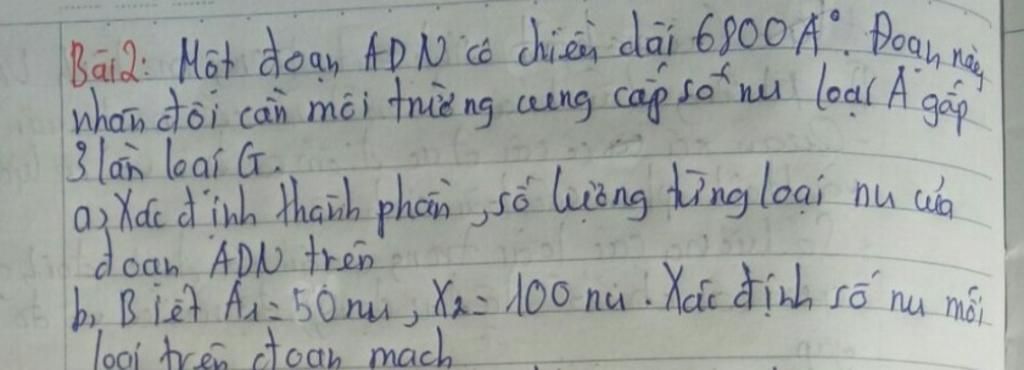 Bài 2: Một đoạn ADN có chiều dài 6800 A°. Đoạn này
nhân đôi cần môi trường cung cấp số nu loại A gấp
3 lần loại G.
a, Xác định thành phần, số lượng từng loại nu của
đoạn ADN trên
b, Biết A1 = 50 nu, X2 = 100 nu. Xác định số nu mỗi
loại trên đoạn mạch